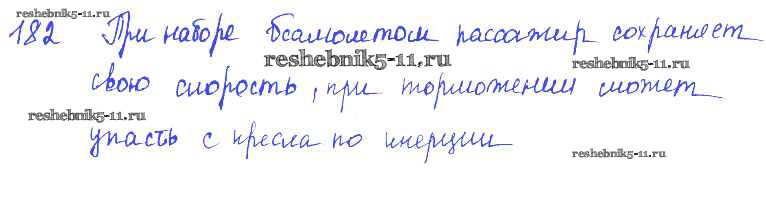 reshebnik5-11.ru
182 При наборе самолетом пассажир сохраняет
reshebnik5-11.ru
reshebnik5-11.ru
свою скорость, при торможении может
reshebnik5-11.ru
упасть с кресла по инерции
reshebnik5-11.ru